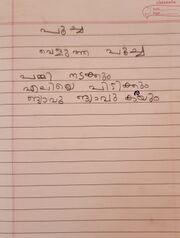 പൂച്ച
വെളുത്ത പൂച്ച
പമ്മി നടക്കും
എലിയെ പിടിക്കും
മ്യാവൂ മ്യാവൂ കരയും